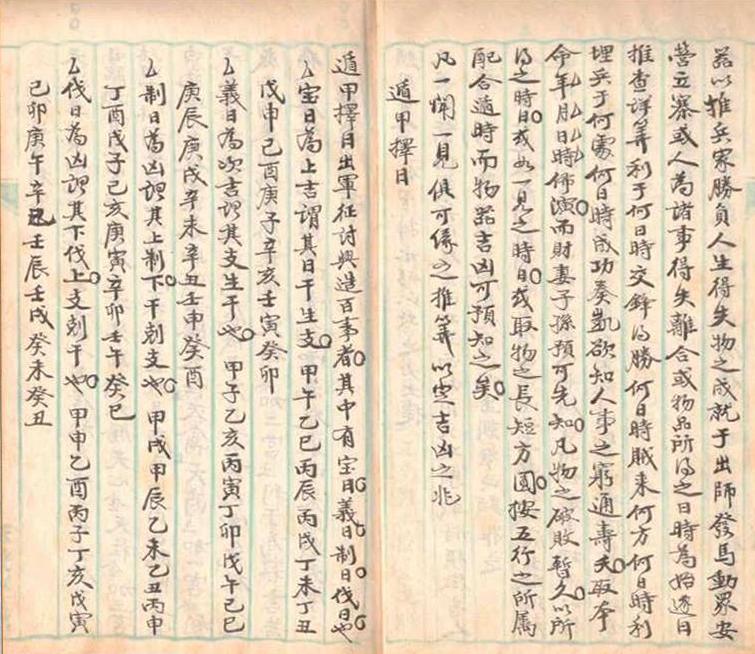 器以推兵家勝負人生得失物之成就于出師發馬動眾安
營立寨或人為諸事得失離合或物品所得之日時為始遂日
推查詳算利于何日時交鋒得勝何日時賊来何方何日時利
埋兵于何處何日時成功奏凱欲知人事之窮通壽夭取本
命年月日時佈演而財妻子孫預可先知凡物之破敗暫久以所
得之時日或如一見之時日或取物之長短方圓按五行之所属
配合遁時而物器吉凶可預知之矣
凡一聞一見俱可像之推算以定吉凶之兆
遁甲擇日
遁甲擇日出軍征討興造百事者其中有宝日義日制日伐日也
宝日為上吉謂其日干生支 甲午乙巳丙辰丙戌丁未丁丑
戊申己酉庚子辛亥壬寅癸卯
義日為次吉謂其支生干也 甲子乙亥丙寅丁卯戊午己巳
庚辰庚戌辛未辛丑壬申癸酉
制日為凶謂其上制下干剋支也 甲戌甲辰乙未乙丑丙申
丁酉戊子己亥庚寅辛卯壬午癸巳
伐日為凶謂其下伐上支剋干也 甲申乙酉丙子丁亥戊寅
己卯庚午辛巳壬辰壬戌癸未癸丑